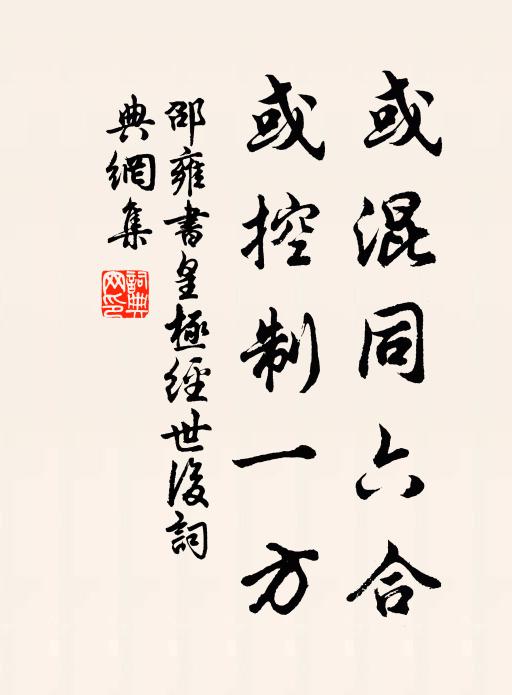 或混同六合
或控制一方
邵雍書皇極經世後詞
典網集
詞典
网印